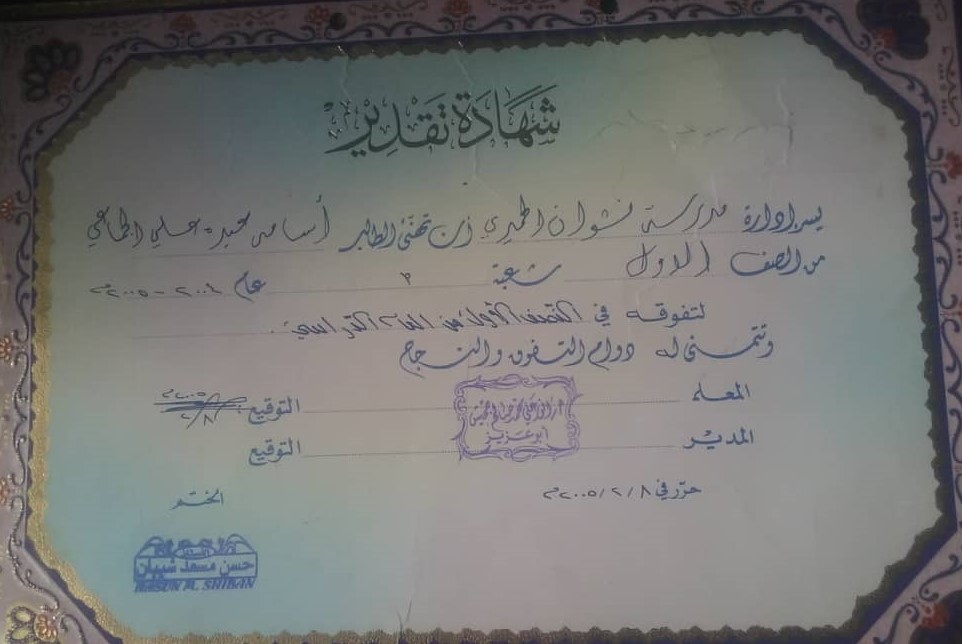 شَهَادَة تَقْدِيْر
يسر إدارة مدرسة نشوان الحميري أن تهنئ الطالب أسامه عبده علي الجماعي
من الصف الاول شعبة ٣ عام ٢٠٠٤ - ٢٠٠٥م
لتفوقه في النصف الأول من العام الدراسي.
وتتمنى له دوام التفوق والنجاح
المعلم التوقيع ٢/٨ ٢٠٠٥م
ابو عزيز
المدير التوقيع
حرّر في ٨/٢/٢٠٠٥م
الختم
حسن مسعد شيبان
HASON M. SHIBAN